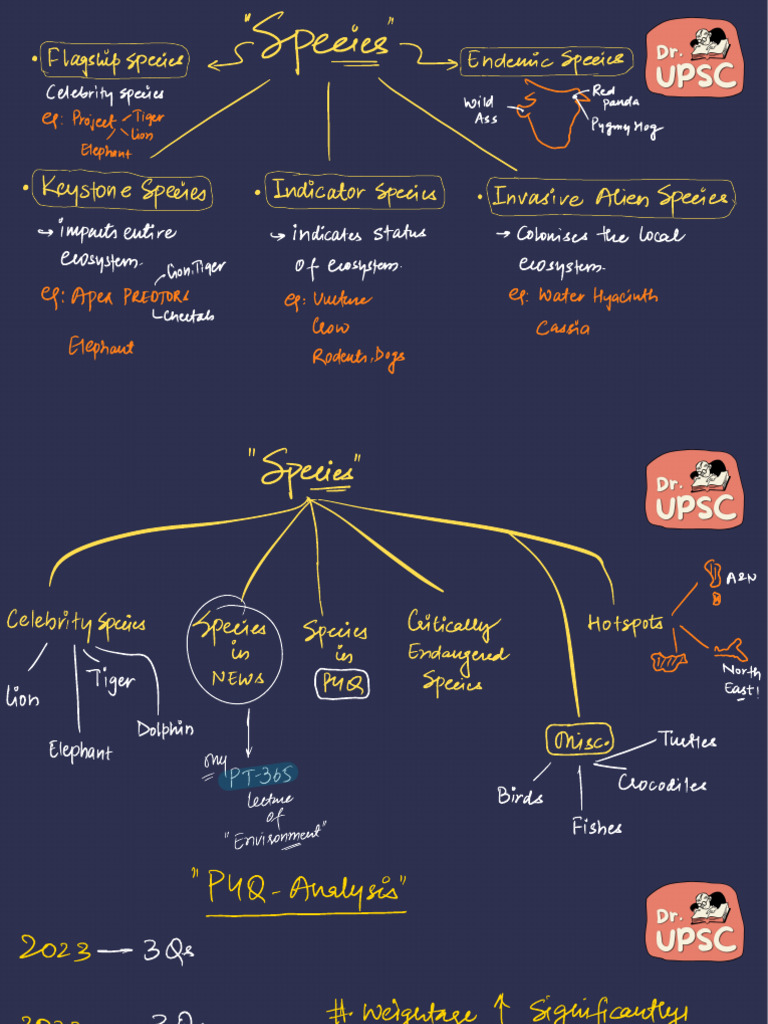 "Species"
• Flagship Species
Celebrity Species
eg: Project Tiger
Lion
Elephant
Endemic Species
Wild Ass
Red panda
Pygmy Hog
Dr.
UPSC
• Keystone Species
↳ impacts entire
ecosystem.
eg: Apex PREDTORS
Lion, Tiger
Cheetah
Elephant
• Indicator Species
↳ indicates status
of ecosystem.
eg: Vulture
Crow
Rodents, Dogs
• Invasive Alien Species
→ Colonises the local
ecosystem.
eg: Water Hyacinth
Cassia
"Species"
Dr.
UPSC
Celebrity Species
Lion
Elephant
Tiger
Dolphin
Species
in
NEWS
only
PT-365
lecture
of
"Environment"
Species
in
PYQ
Critically
Endangered
Species
Misc.
Birds
Fishes
Crocodiles
Turtles
Hotspots
A&N
North
East!
"PYQ - Analysis"
Dr.
UPSC
2023 — 3 Qs
# Weightage ↑ Significantly